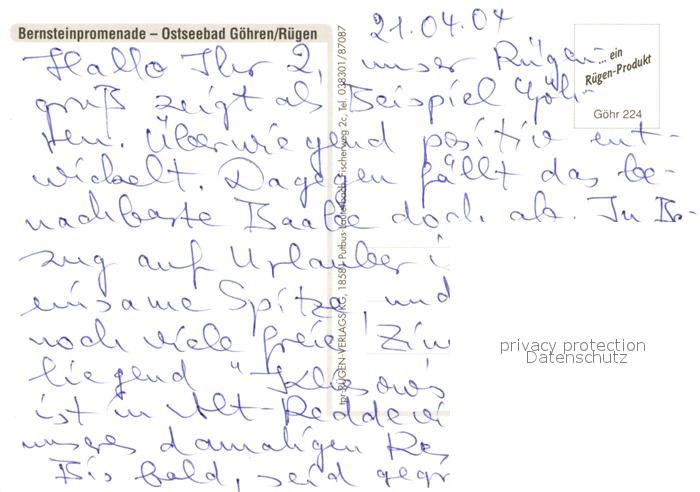 Bernsteinpromenade – Ostseebad Göhren/Rügen
21.04.04
... ein
Rügen-Produkt
Göhr 224
Hallo Ihr 2, unser Rügen-
gruß zeigt als Beispiel Göh-
ren. Überwiegend positiv ent-
wickelt. Dagegen fällt das be-
nachbarte Baabe doch ab. In Be-
zug auf Urlauber i
einsame Spitze und
noch viele freie Zim
liegend
ist in Alt-Reddevi
unseres damaligen
Bis bald, seid gegr
RÜGEN-VERLAGS/KG, 1858 Putbus-Lauterbach, Fischerweg 2c, Tel. 038301/87087
privacy protection
Datenschutz